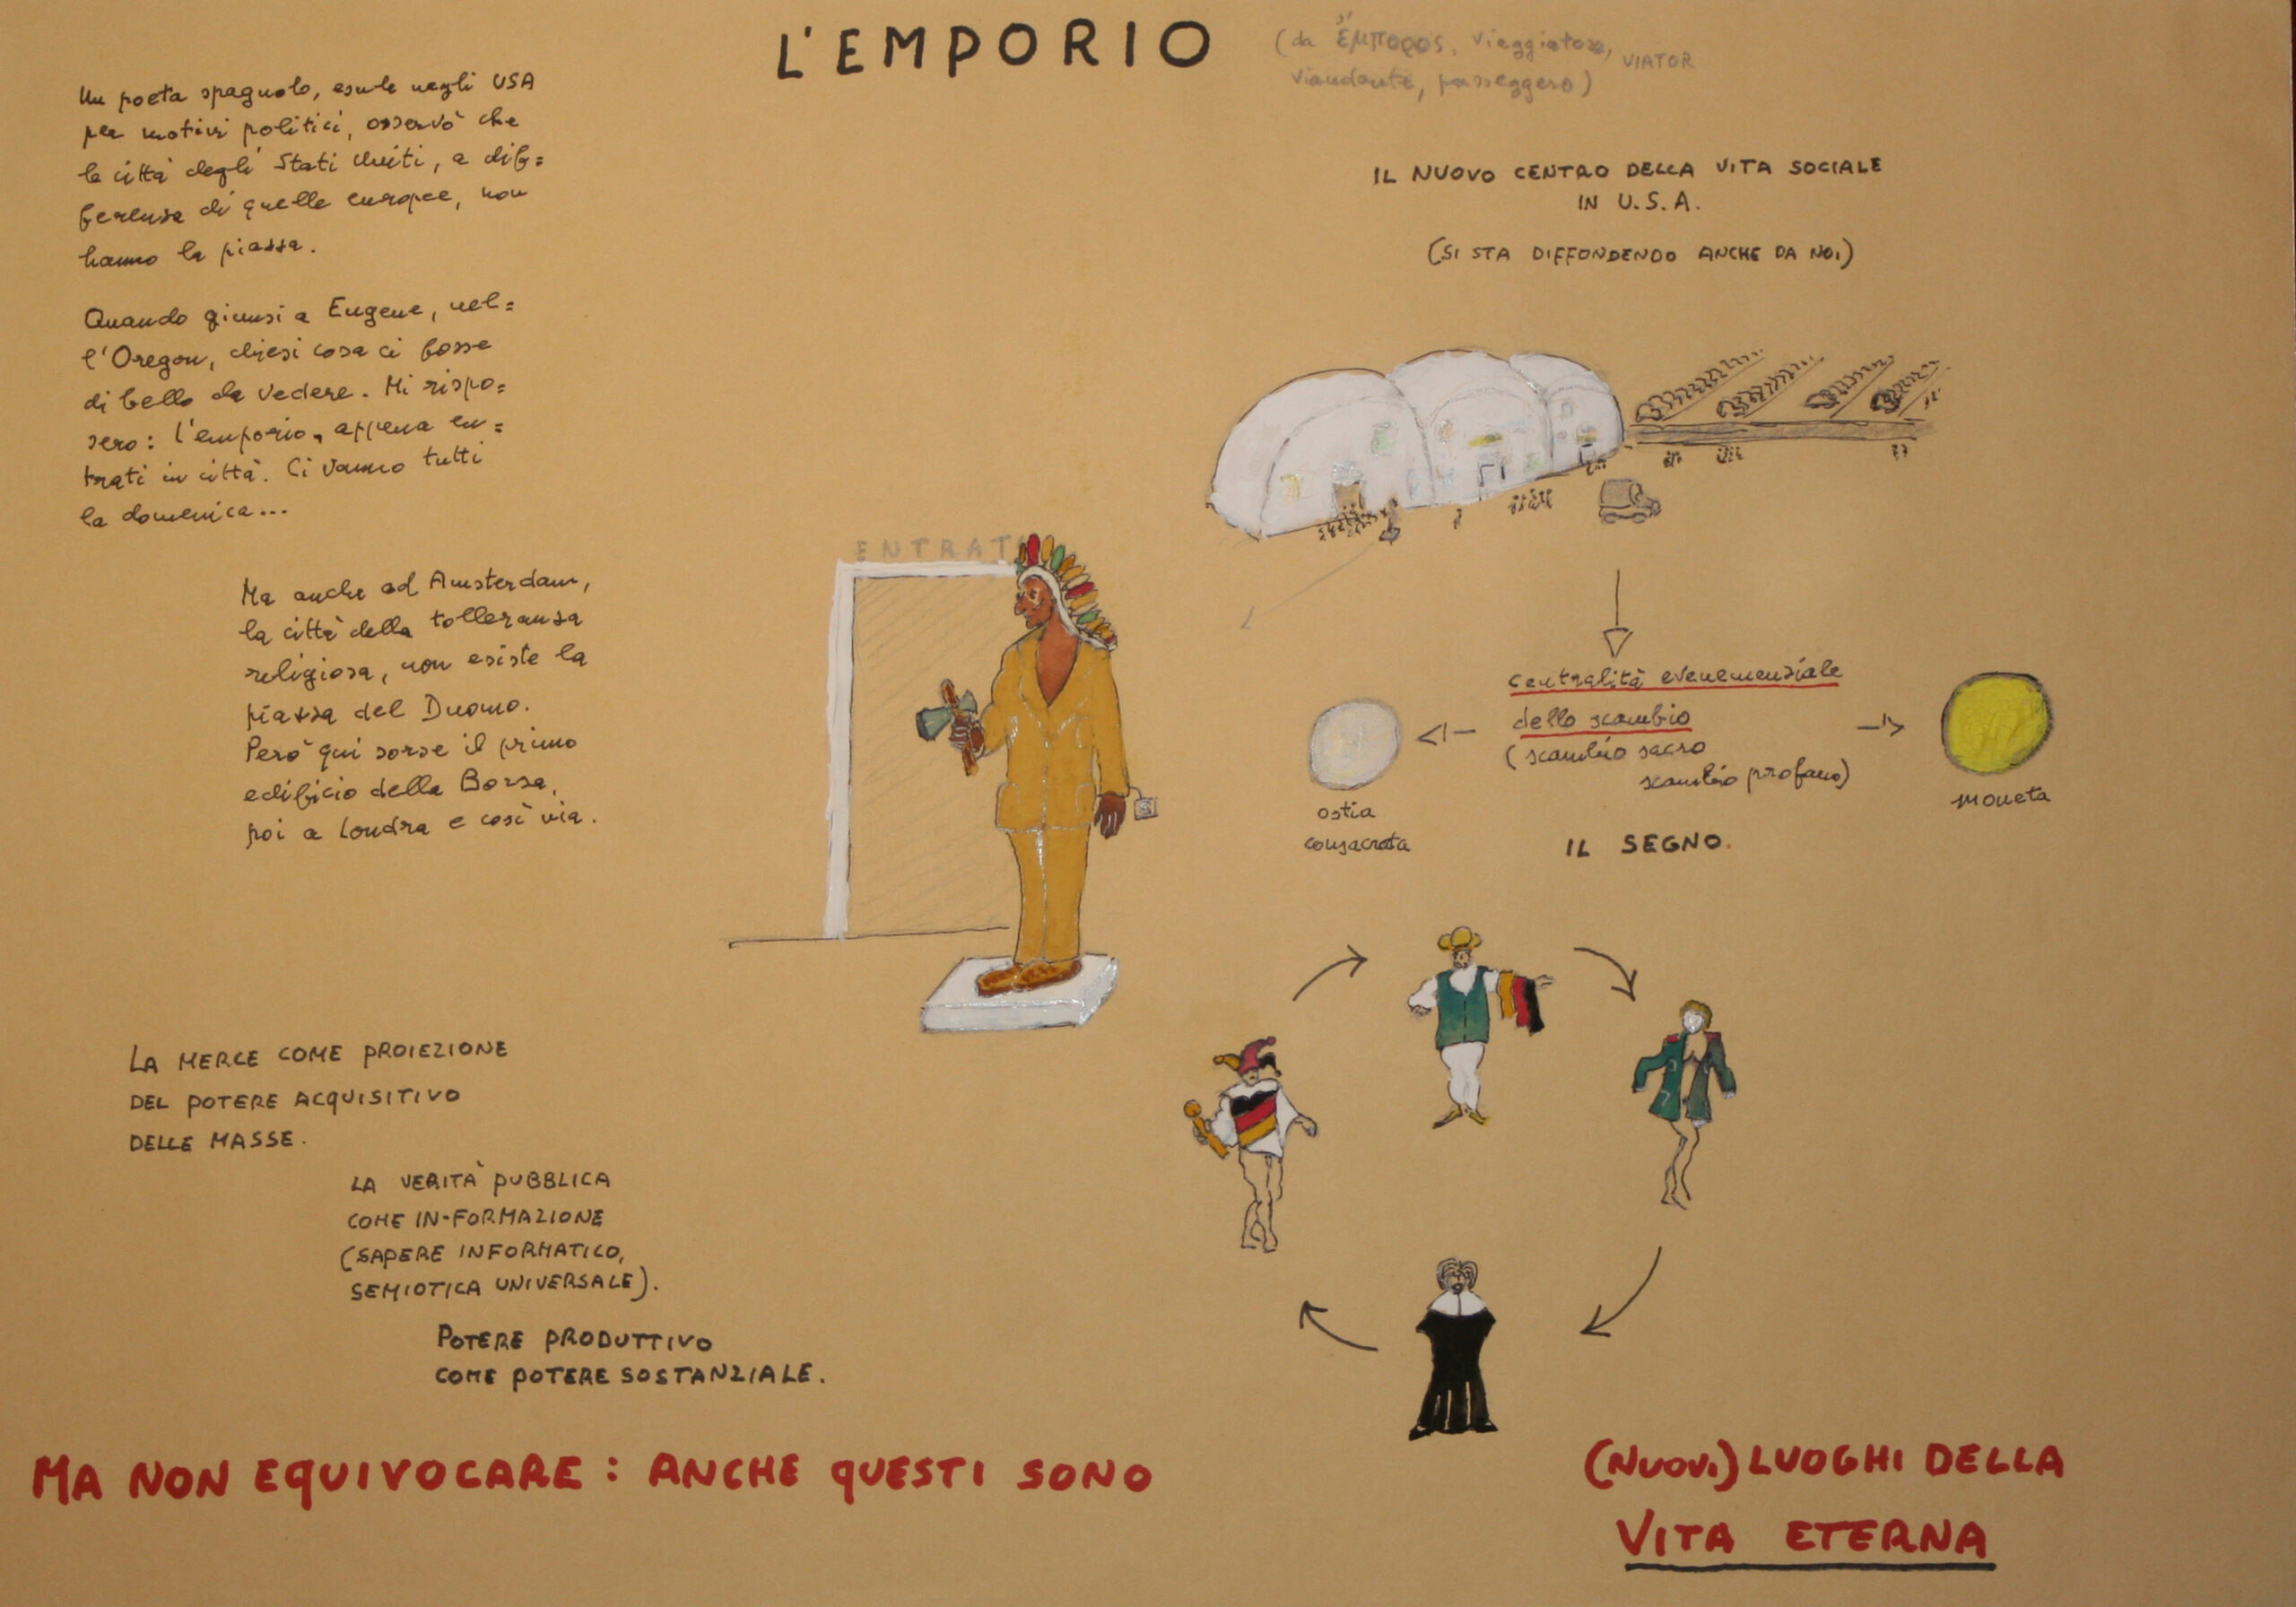 L'EMPORIO
(da ἔμπορος, viaggiatore, VIATOR
viandante, passeggero)
Un poeta spagnolo, esule negli USA
per motivi politici, osservò che
le città degli Stati Uniti, a dif=
ferenza di quelle europee, non
hanno la piazza.
Quando giunsi a Eugene, nel=
l'Oregon, chiesi cosa ci fosse
di bello da vedere. Mi rispo=
sero: l'emporio, appena en=
trati in città. Ci vanno tutti
la domenica...
Ma anche ad Amsterdam,
la città della tolleranza
religiosa, non esiste la
piazza del Duomo.
Però qui sorse il primo
edificio della Borsa,
poi a Londra e così via.
LA MERCE COME PROIEZIONE
DEL POTERE ACQUISITIVO
DELLE MASSE.
LA VERITÀ PUBBLICA
COME IN-FORMAZIONE
(SAPERE INFORMATICO,
SEMIOTICA UNIVERSALE).
POTERE PRODUTTIVO
COME POTERE SOSTANZIALE.
ENTRATA
IL NUOVO CENTRO DELLA VITA SOCIALE
IN U.S.A.
(SI STA DIFFONDENDO ANCHE DA NOI)
centralità evenemenziale
dello scambio
(scambio sacro
scambio profano)
ostia
consacrata
moneta
IL SEGNO.
MA NON EQUIVOCARE: ANCHE QUESTI SONO
(NUOVI) LUOGHI DELLA
VITA ETERNA